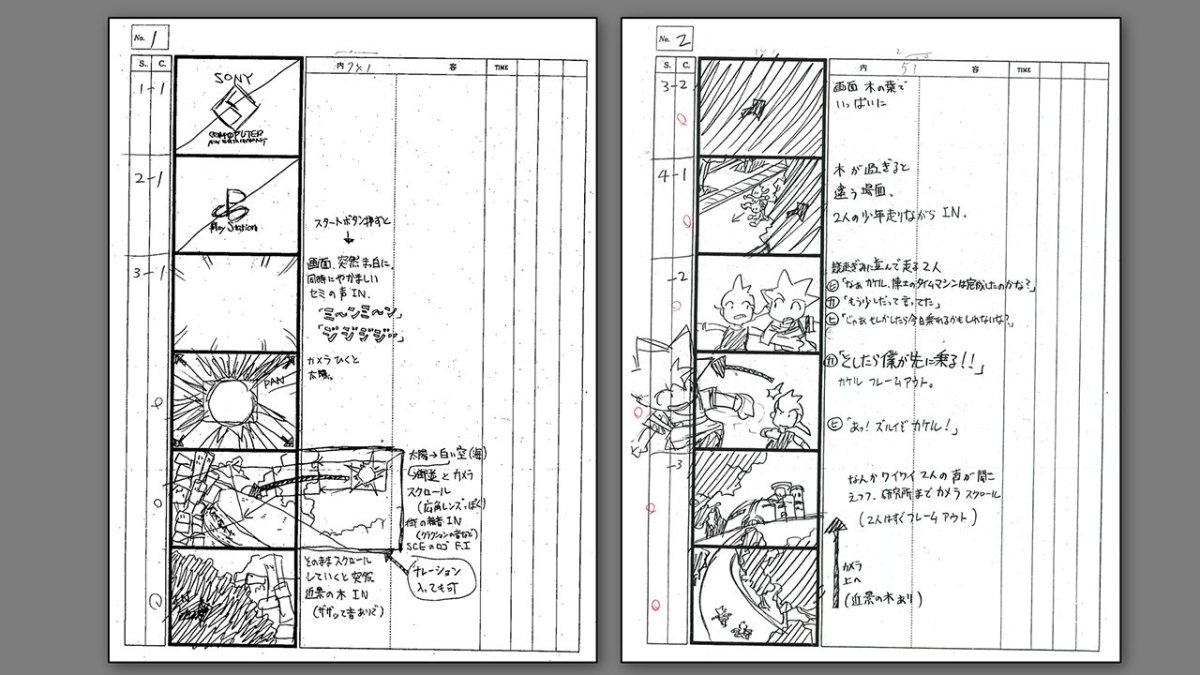 No. 1
S. C. 内 容 TIME
1-1
SONY
COMPUTER
2-1
Play Station
スタートボタン押すと
3-1
画面、突然真白に、
同時にやかましい
セミの声 IN.
「ミ〜ンミ〜ン」
「ジジジジ・・」
カメラひくと
太陽。
PAN
太陽→白い空(海)
→街並とカメラ
スクロール
(広角レンズっぽく)
街の雑音 IN
(クラクションの音など)
SCEのロゴ F.I
ナレーション
入っても可
そのままスクロール
していくと突然
近景の木 IN
(ザザって音ありで)
No. 2
S. C. 内 容 TIME
3-2
画面 木の葉で
いっぱいに
4-1
木が過ぎると
違う場面。
2人の少年走りながら IN.
-2
競走ぎみに並んで走る2人
ヒ「なぁカケル、博士のタイムマシンは完成したのかな?」
カ「もう少しだって言ってた」
ヒ「じゃあもしかしたら今日乗れるかもしれないな?」
カ「としたら僕が先に乗る!!」
カケル フレームアウト。
ヒ「あっ! ズルイぞ カケル!」
-3
なんかワイワイ2人の声が聞こ
えつつ、研究所までカメラスクロール
(2人はすぐフレームアウト)
カメラ
上へ
(近景の木あり)